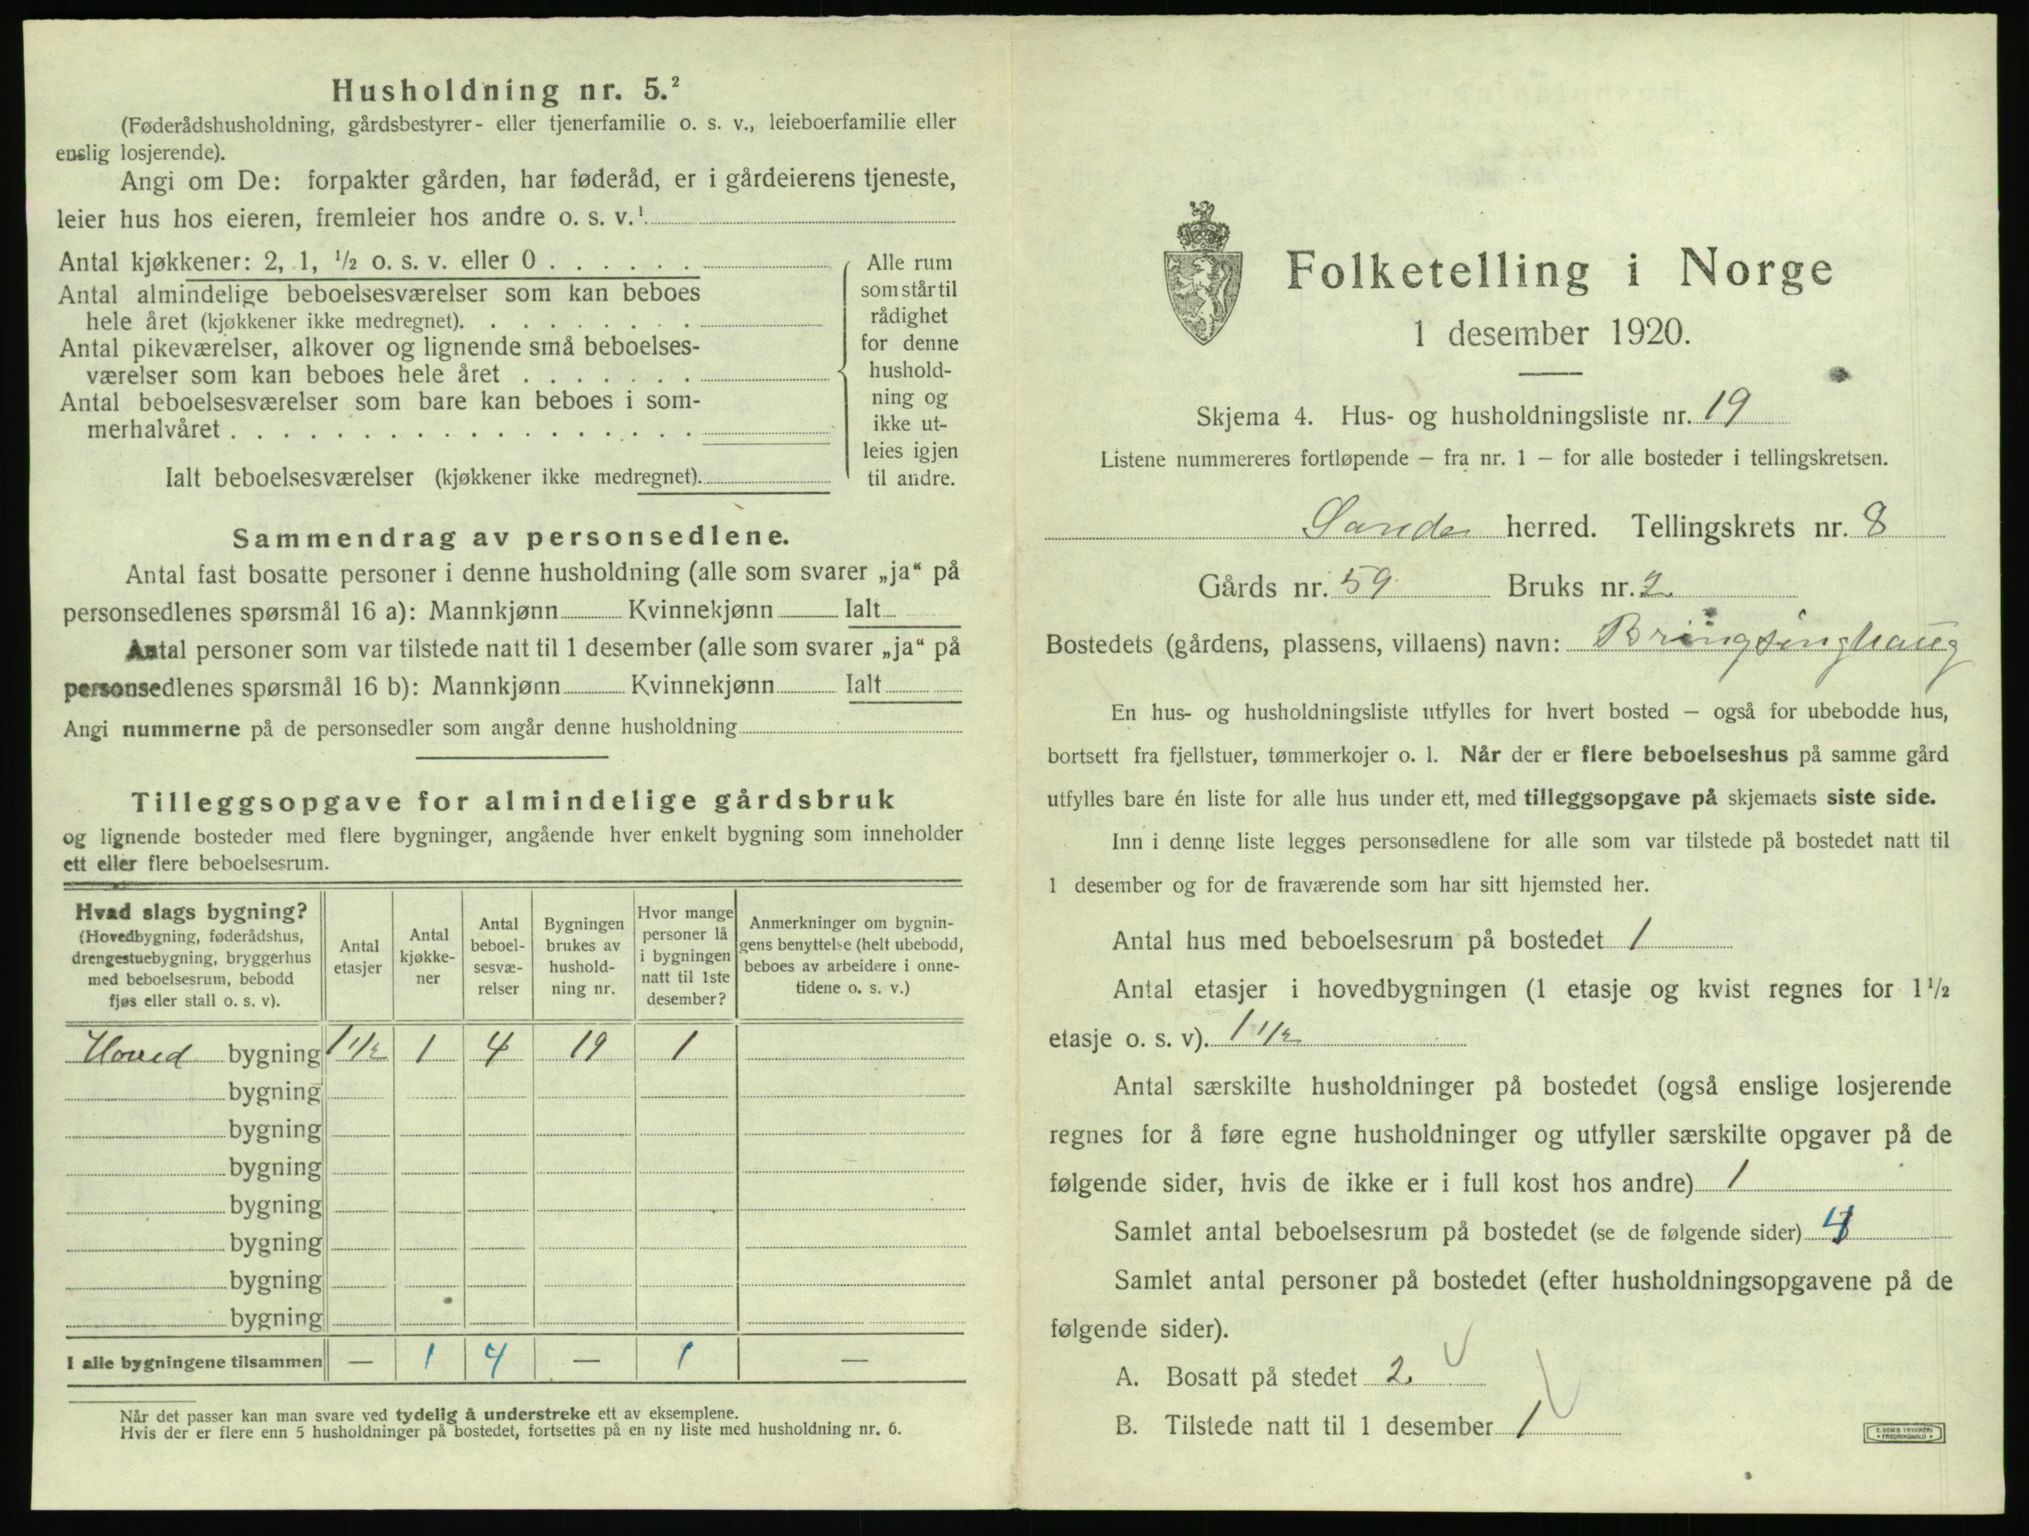 Husholdning nr. 5.²
(Føderådshusholdning, gårdsbestyrer- eller tjenerfamilie o. s. v., leieboerfamilie eller
enslig losjerende).
Angi om De: forpakter gården, har føderåd, er i gårdeierens tjeneste,
leier hus hos eieren, fremleier hos andre o. s. v.¹
Antal kjøkkener: 2, 1, ½ o. s. v. eller 0 . . . . . .
Antal almindelige beboelsesværelser som kan beboes
hele året (kjøkkener ikke medregnet). . . . . . . . .
Antal pikeværelser, alkover og lignende små beboelses-
værelser som kan beboes hele året . . . . . . .
Antal beboelsesværelser som bare kan beboes i som-
merhalvåret . . . . . . . . . . . . . . . . . .
Ialt beboelsesværelser (kjøkkener ikke medregnet).
Alle rum
som står til
rådighet
for denne
hushold-
ning og
ikke ut-
leies igjen
til andre.
Sammendrag av personsedlene.
Antal fast bosatte personer i denne husholdning (alle som svarer „ja“ på
personsedlenes spørsmål 16 a): Mannkjønn Kvinnekjønn Ialt
Antal personer som var tilstede natt til 1 desember (alle som svarer „ja“ på
personsedlenes spørsmål 16 b): Mannkjønn Kvinnekjønn Ialt
Angi nummerne på de personsedler som angår denne husholdning
Tilleggsopgave for almindelige gårdsbruk
og lignende bosteder med flere bygninger, angående hver enkelt bygning som inneholder
ett eller flere beboelsesrum.
Hvad slags bygning?
(Hovedbygning, føderådshus,
drengestuebygning, bryggerhus
med beboelsesrum, bebodd
fjøs eller stall o. s. v).
Antal
etasjer
Antal
kjøkke-
ner
Antal
beboel-
sesvæ-
relser
Bygningen
brukes av
hushold-
ning nr.
Hvor mange
personer lå
i bygningen
natt til 1ste
desember?
Anmerkninger om bygnin-
gens benyttelse (helt ubebodd,
beboes av arbeidere i onne-
tidene o. s. v.)
Hoved bygning 1 1/2 1 4 19 1
bygning
bygning
bygning
bygning
bygning
bygning
bygning
I alle bygningene tilsammen — 1 4 — 1 —
Når det passer kan man svare ved tydelig å understreke ett av eksemplene.
Hvis der er flere enn 5 husholdninger på bostedet, fortsettes på en ny liste med husholdning nr. 6.
Folketelling i Norge
1 desember 1920.
Skjema 4. Hus- og husholdningsliste nr. 19
Listene nummereres fortløpende — fra nr. 1 — for alle bosteder i tellingskretsen.
Sande herred. Tellingskrets nr. 8
Gårds nr. 59 Bruks nr. 2
Bostedets (gårdens, plassens, villaens) navn: Bringsinghaug
En hus- og husholdningsliste utfylles for hvert bosted — også for ubebodde hus,
bortsett fra fjellstuer, tømmerkojer o. l. Når der er flere beboelseshus på samme gård
utfylles bare én liste for alle hus under ett, med tilleggsopgave på skjemaets siste side.
Inn i denne liste legges personsedlene for alle som var tilstede på bostedet natt til
1 desember og for de fraværende som har sitt hjemsted her.
Antal hus med beboelsesrum på bostedet 1
Antal etasjer i hovedbygningen (1 etasje og kvist regnes for 1½
etasje o. s. v). 1 1/2
Antal særskilte husholdninger på bostedet (også enslige losjerende
regnes for å føre egne husholdninger og utfyller særskilte opgaver på de
følgende sider, hvis de ikke er i full kost hos andre) 1
Samlet antal beboelsesrum på bostedet (se de følgende sider) 4
Samlet antal personer på bostedet (efter husholdningsopgavene på de
følgende sider).
A. Bosatt på stedet 2
B. Tilstede natt til 1 desember 1